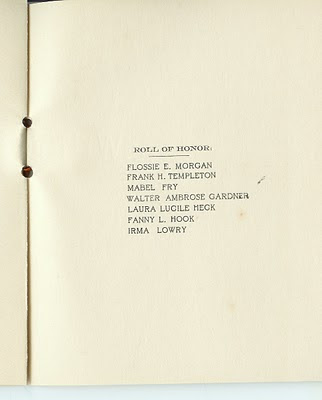 ROLL OF HONOR:
FLOSSIE E. MORGAN
FRANK H. TEMPLETON
MABEL FRY
WALTER AMBROSE GARDNER
LAURA LUCILE HECK
FANNY L. HOOK
IRMA LOWRY